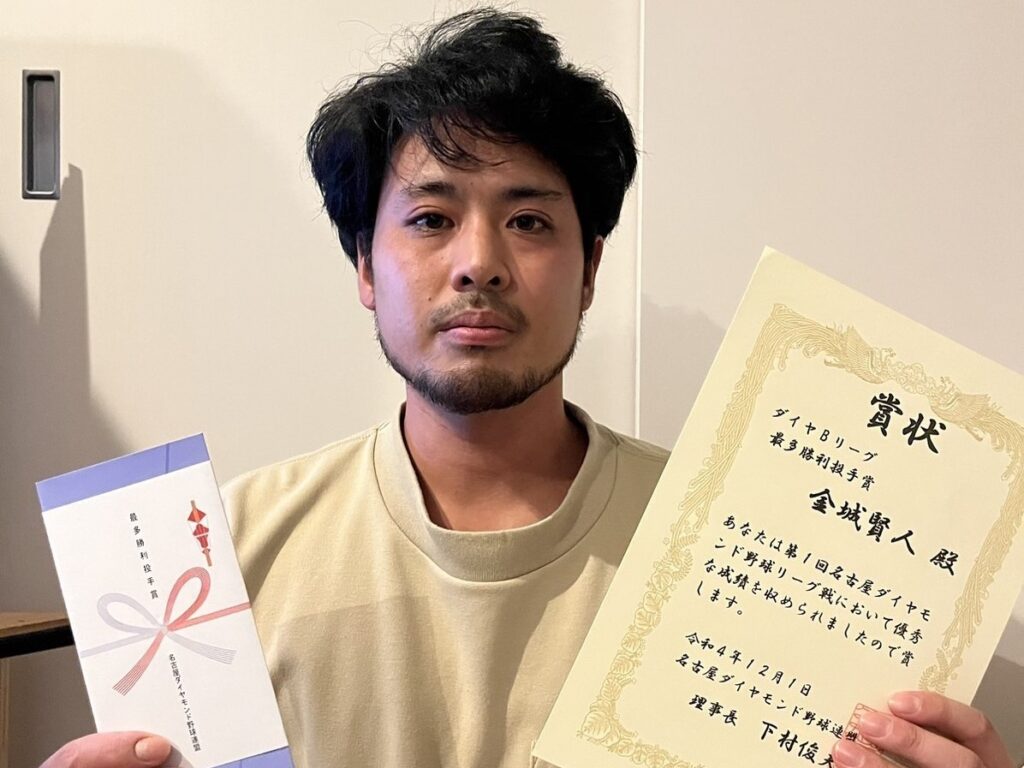 最多勝利投手賞
名古屋ダイヤモンド野球連盟
賞状
ダイヤBリーグ
最多勝利投手賞
金城賢人 殿
あなたは第1回名古屋ダイヤモ
ンド野球リーグ戦において優秀
な成績を収められましたので賞
します。
令和4年12月1日
名古屋ダイヤモンド野球連盟
理事長 下村俊